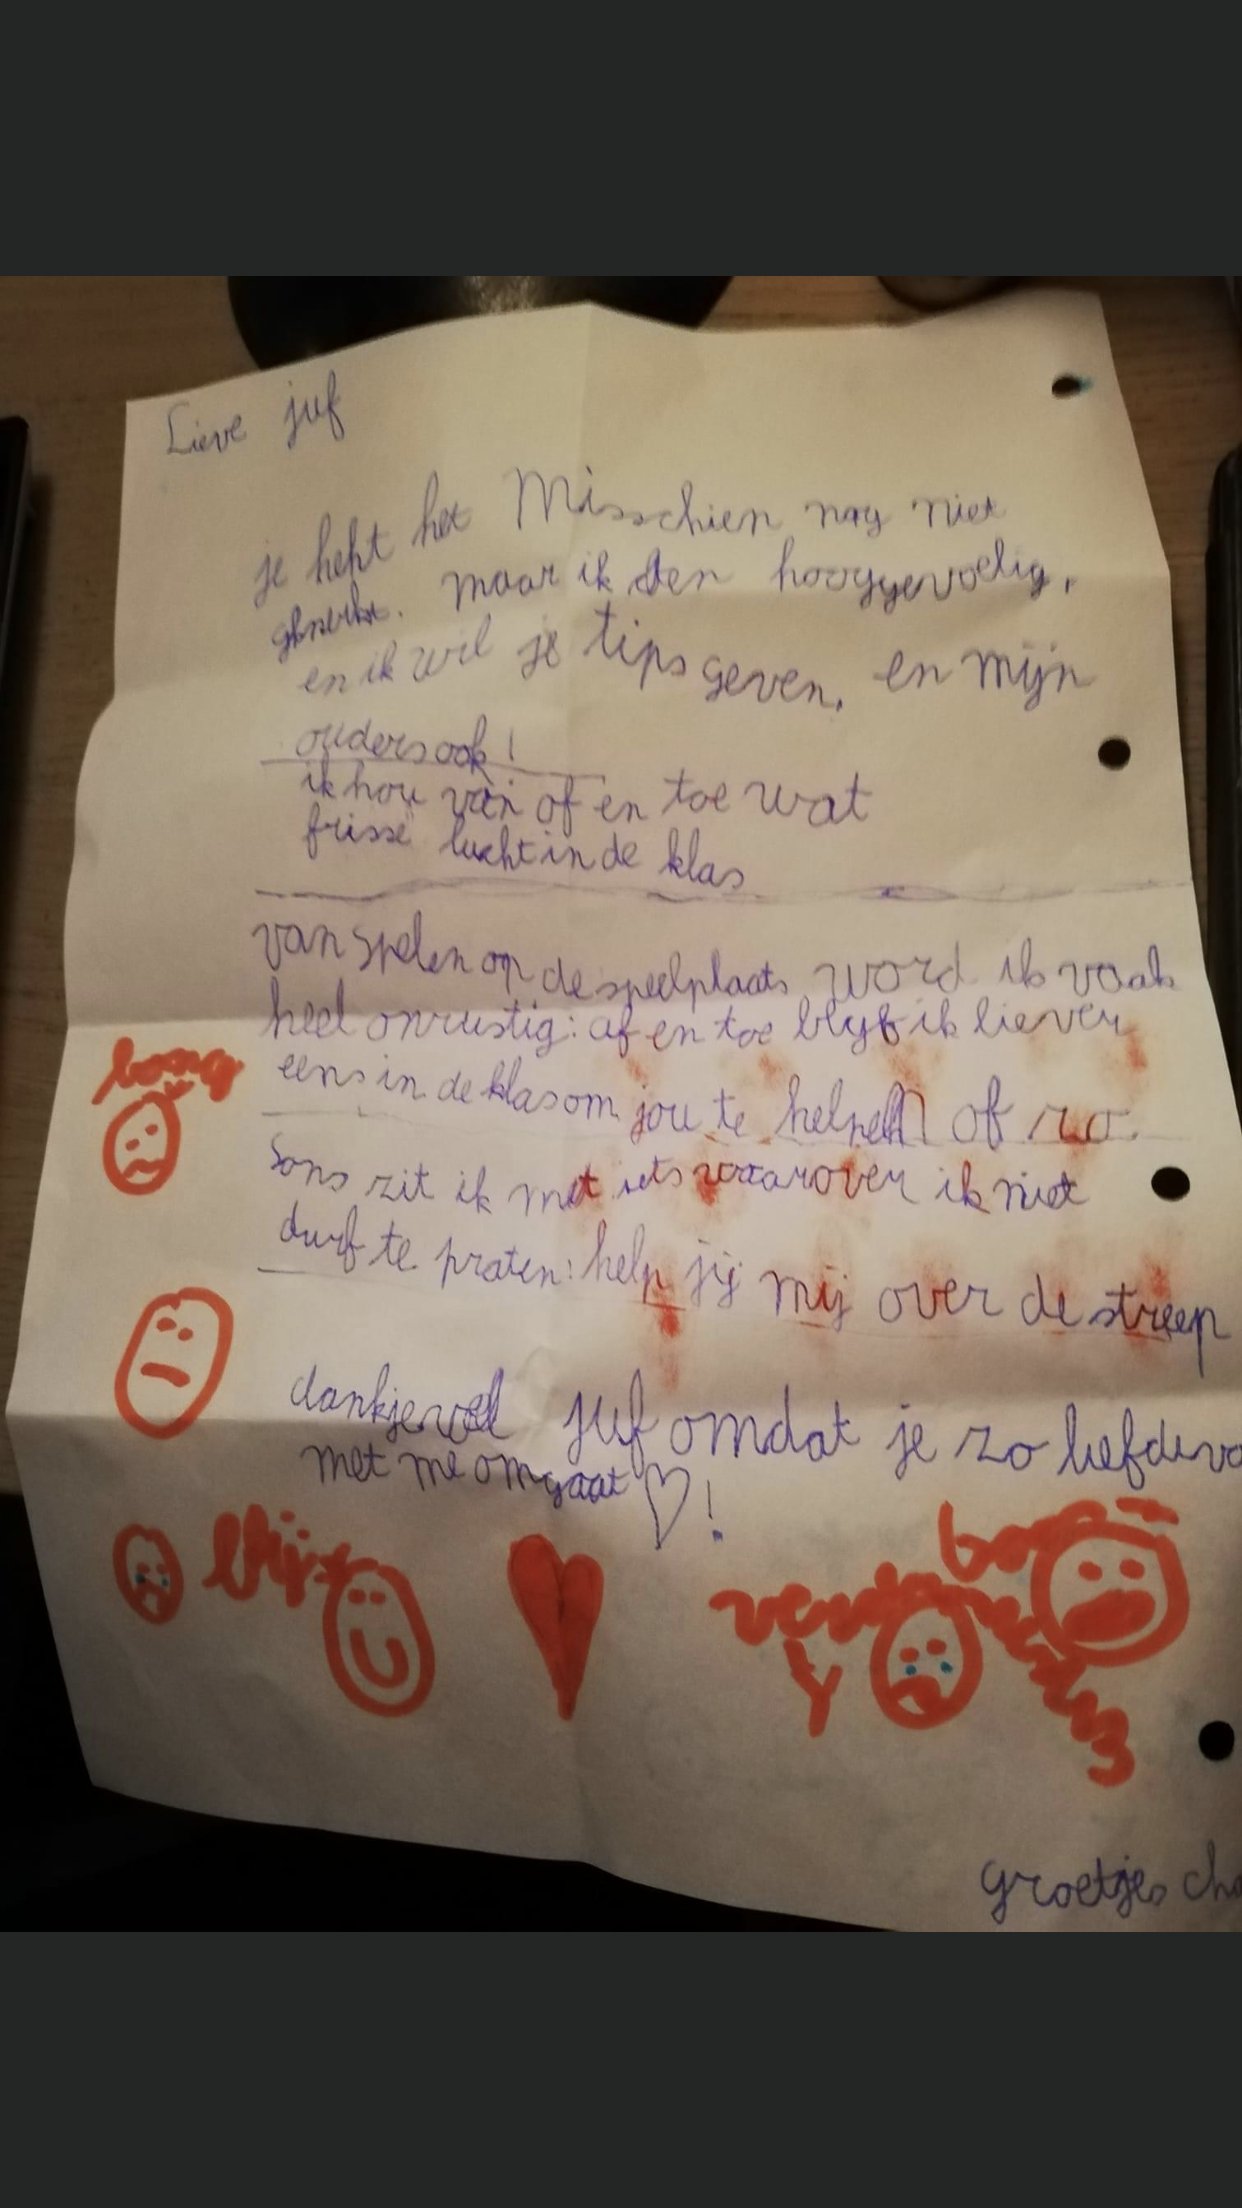 Lieve juf
je hebt het Misschien nog niet
gemerkt. maar ik ben hooggevoelig,
en ik wil je tips geven, en mijn
ouders ook!
ik hou van of en toe wat
frisse lucht in de klas
van spelen op de speelplaats word ik vaak
heel onrustig: af en toe blyf ik liever
eens in de klas om jou te helpen of zo.
bang
Soms zit ik met iets waarover ik niet
durf te praten: help jij mij over de streep
dankjewel juf omdat je zo liefdevo
met me omgaat ♡!
blij
boos
groetjes cha